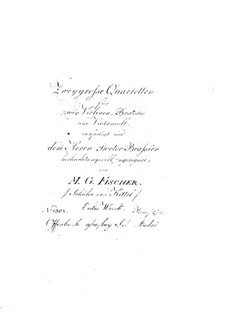 Zwey grosse Quartetten
für
zwey Violinen, Bratsche
und Violoncell
verfertigt und
dem Herrn Doctor
hochachtungsvoll zugeeignet
von
M. G. FISCHER.
Schüler von Kittel
Erstes Werk.
Offenbach bey André